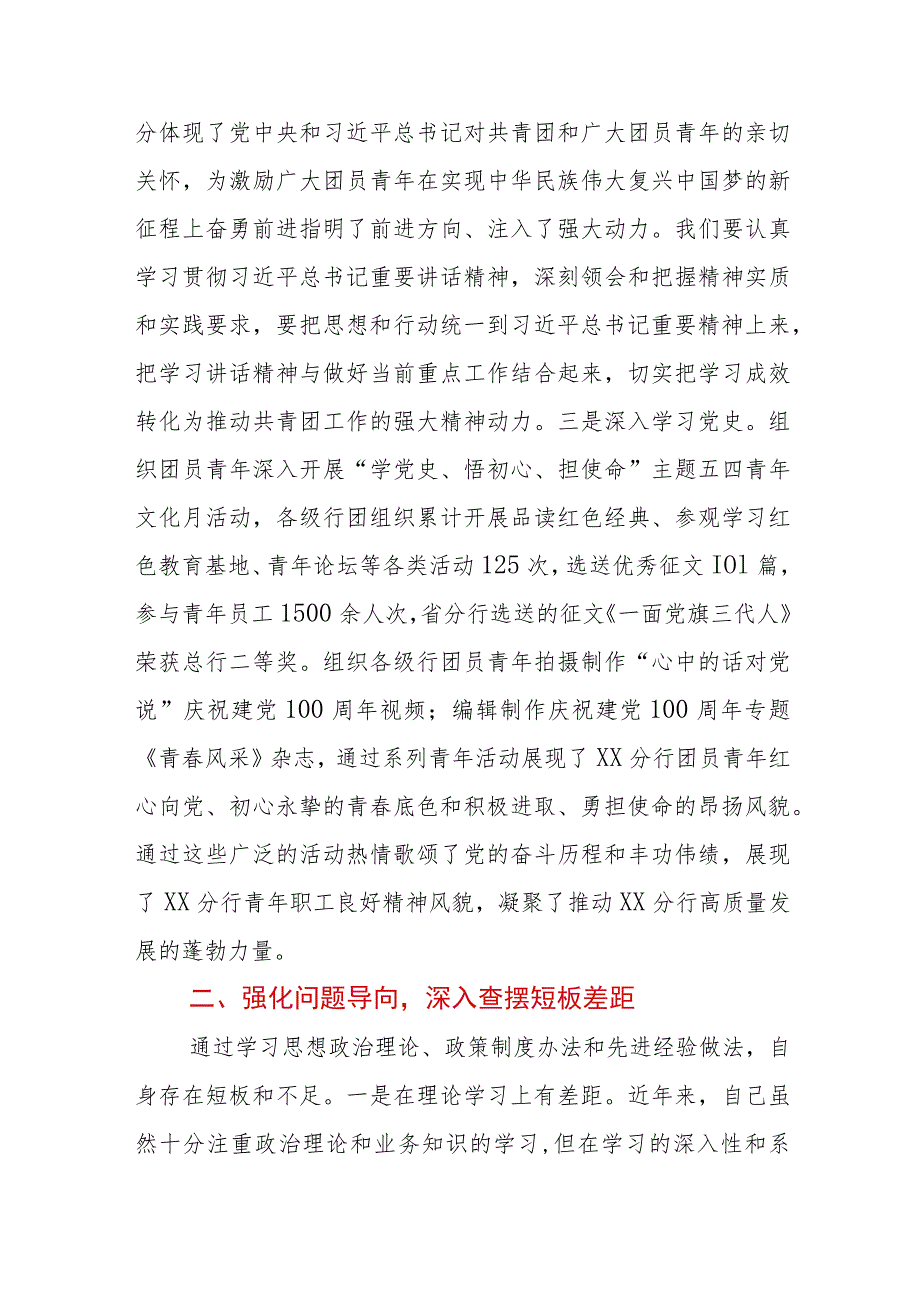 分体现了党中央和习近平总书记对共青团和广大团员青年的亲切
关怀，为激励广大团员青年在实现中华民族伟大复兴中国梦的新
征程上奋勇前进指明了前进方向、注入了强大动力。我们要认真
学习贯彻习近平总书记重要讲话精神，深刻领会和把握精神实质
和实践要求，要把思想和行动统一到习近平总书记重要精神上来，
把学习讲话精神与做好当前重点工作结合起来，切实把学习成效
转化为推动共青团工作的强大精神动力。三是深入学习党史。组
织团员青年深入开展“学党史、悟初心、担使命”主题五四青年
文化月活动，各级行团组织累计开展品读红色经典、参观学习红
色教育基地、青年论坛等各类活动 125 次，选送优秀征文 IOl 篇，
参与青年员工 1500 余人次，省分行选送的征文《一面党旗三代人》
荣获总行二等奖。组织各级行团员青年拍摄制作“心中的话对党
说”庆祝建党 100 周年视频；编辑制作庆祝建党 100 周年专题
《青春风采》杂志，通过系列青年活动展现了 XX 分行团员青年红
心向党、初心永挚的青春底色和积极进取、勇担使命的昂扬风貌。
通过这些广泛的活动热情歌颂了党的奋斗历程和丰功伟绩，展现
了 XX 分行青年职工良好精神风貌，凝聚了推动 XX 分行高质量发
展的蓬勃力量。
二、强化问题导向，深入查摆短板差距
通过学习思想政治理论、政策制度办法和先进经验做法，自
身存在短板和不足。一是在理论学习上有差距。近年来，自己虽
然十分注重政治理论和业务知识的学习,但在学习的深入性和系